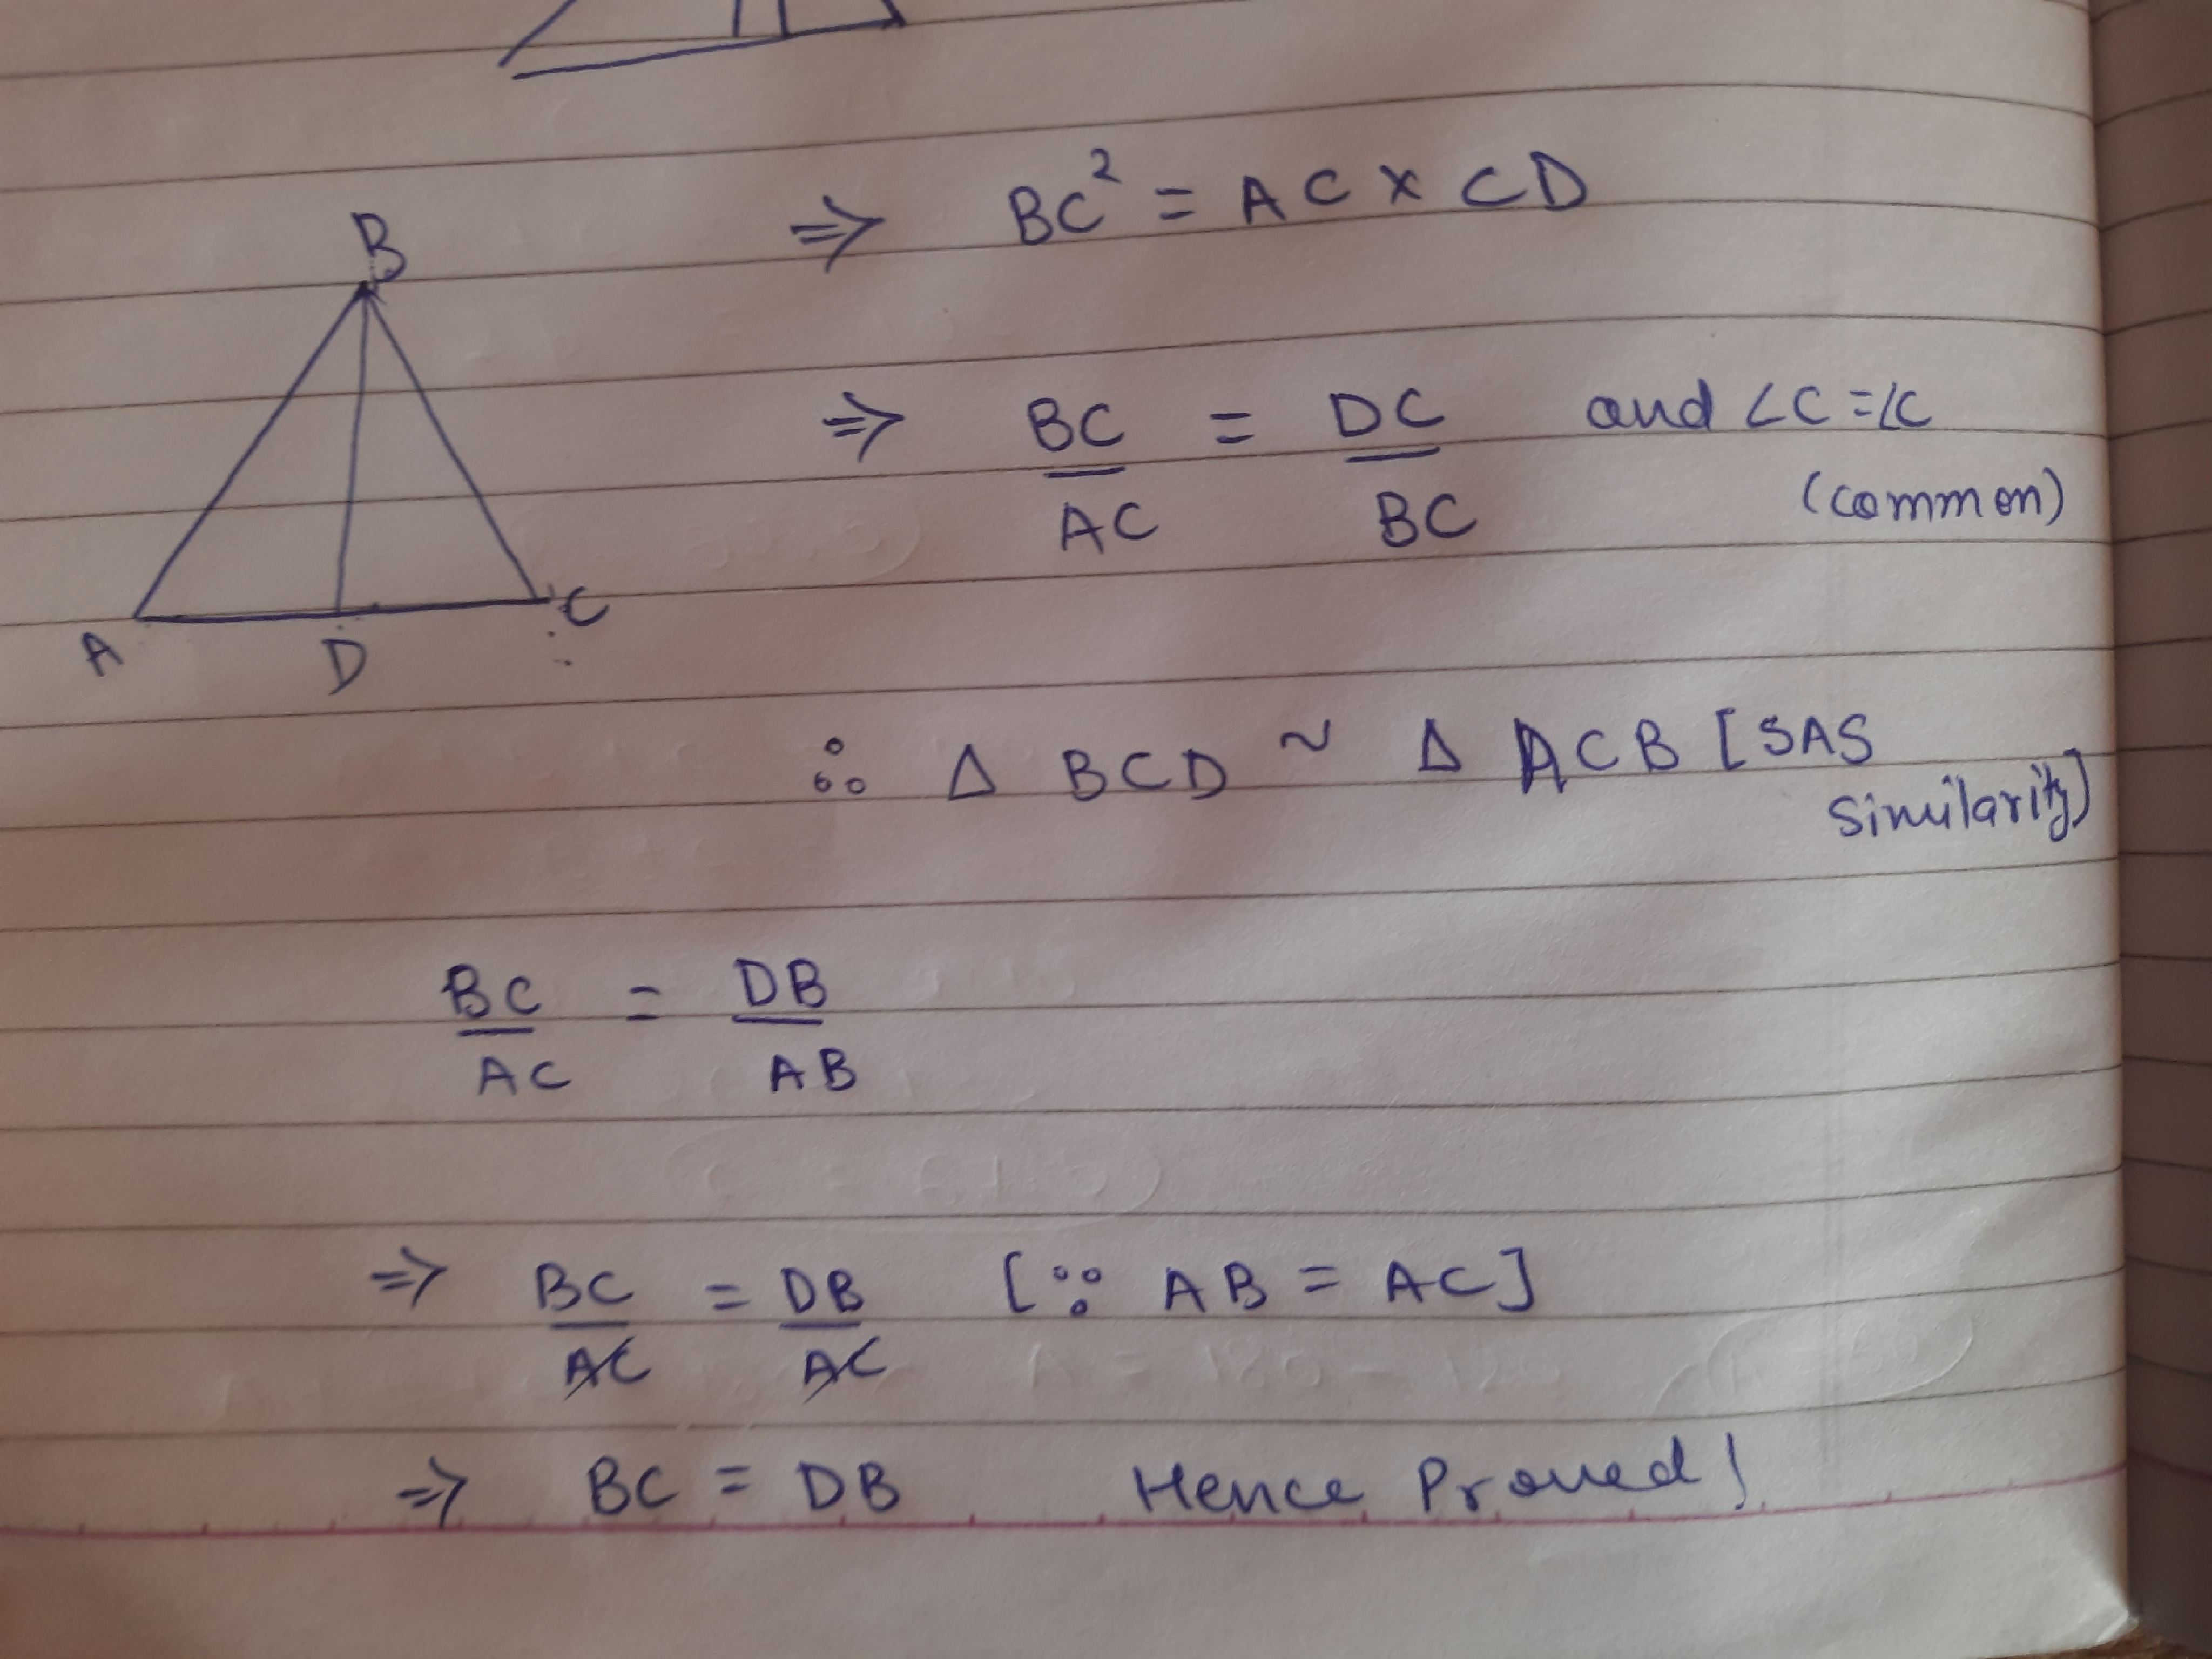 B
A
D
C
⇒ BC² = AC × CD
⇒ BC/AC = DC/BC and ∠C = ∠C
(common)
∴ Δ BCD ~ Δ ACB [SAS
Similarity]
BC/AC = DB/AB
⇒ BC/AC = DB/AC [∵ AB = AC]
⇒ BC = DB Hence Proved!